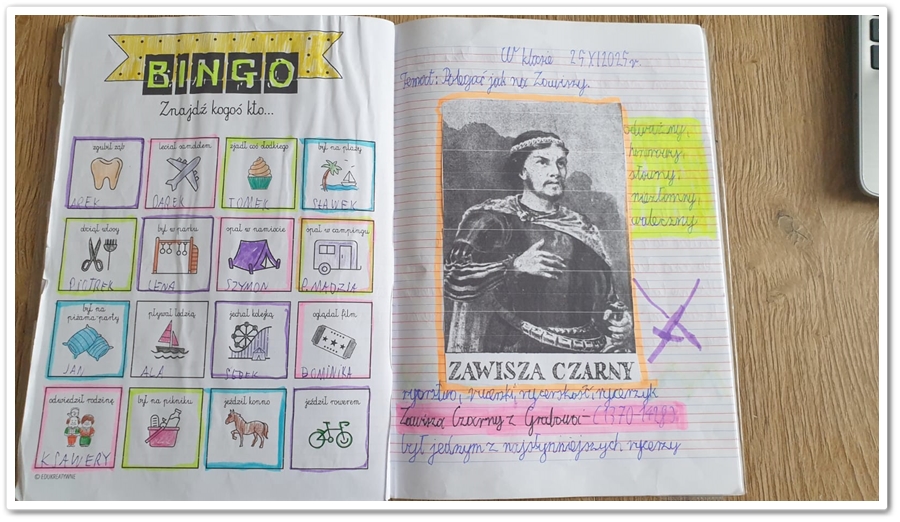 BINGO
Znajdź kogoś kto...
zgubił ząb
leciał samolotem
zjadł coś słodkiego
był na plaży
AREK
DAREK
TOMEK
SŁAWEK
obciął włosy
był w parku
spał w namiocie
spał w campingu
PIOTREK
LENA
SZYMON
P. MADZIA
był na
pisama party
pływał łodzią
jechał kolejką
oglądał film
JAN
ALA
SEBEK
DOMINIKA
odwiedził rodzinę
był na pikniku
jeździł konno
jeździł rowerem
KSAWERY
© EDUKREATYWNIE
W klasie 25 XI 2025 r.
Temat: Polegać jak na Zawiszy.
odważny,
honorowy,
słowny,
niezłomny,
waleczny
ZAWISZA CZARNY
rycerstwo, rycerski, rycerskość, rycerzyk
Zawisza Czarny z Grabowa - (1370-1428)
był jednym z najsłynniejszych rycerzy